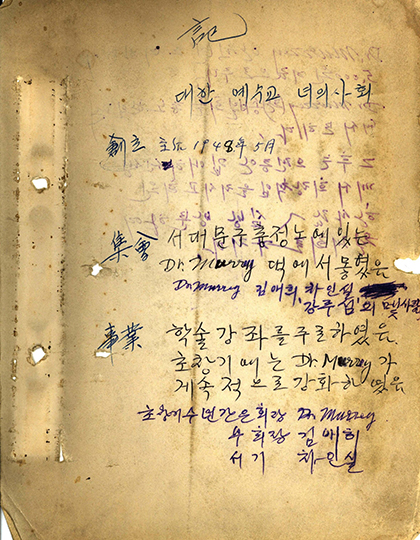 記
대한 예수교 녀의사회
創立 1948年 5月
集會 서대문구 충정노에 있는
Dr. Murray 댁에서 뫃였음
Dr. Murray 김애희, 차인실
강주섭 외 몇사람
事業 학술강좌를 주로하였음.
초창기에는 Dr. Murray가
게속적으로 강화하였음
초창기 수년간은 회장 Dr. Murray
부회장 김애희
서기 차인실